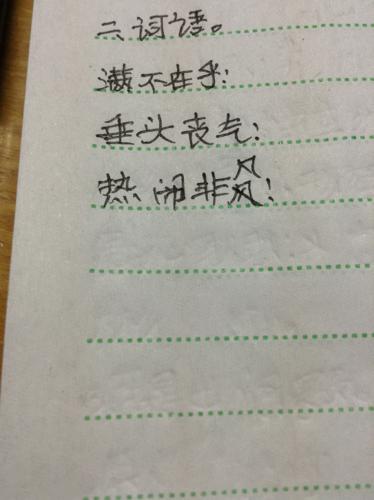 二词语。
满不在乎!
垂头丧气!
热闹非风!